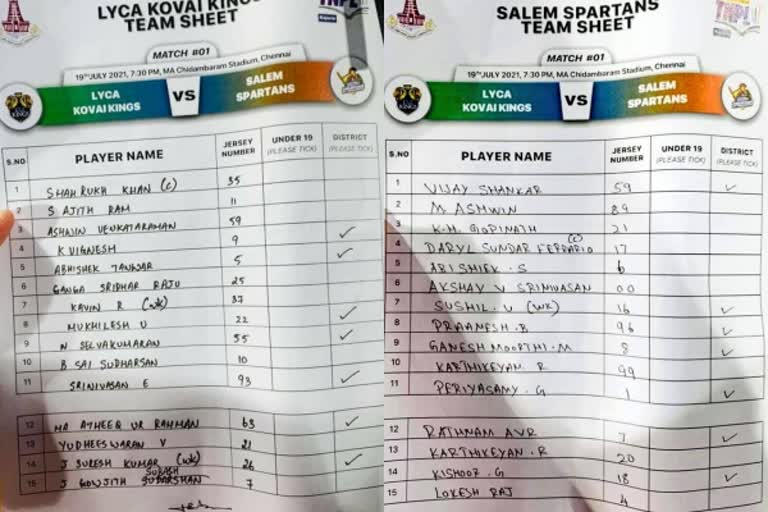 LYCA KOVAI KINGS
TEAM SHEET
TNPL
MATCH #01
19TH JULY 2021, 7:30 PM, MA Chidambaram Stadium, Chennai
KINGS
LYCA
KOVAI KINGS
VS
SALEM
SPARTANS
S.NO PLAYER NAME JERSEY NUMBER UNDER 19 (PLEASE TICK) DISTRICT (PLEASE TICK)
1 SHAH RUKH KHAN (C) 35
2 S AJITH RAM 11
3 ASHWIN VENKATARAMAN 59 ✓
4 K VIGNESH 9 ✓
5 ABHISHEK TANWAR 5
6 GANGA SRIDHAR RAJU 25
7 KAVIN R (WK) 37
8 MUKHILESH U 22 ✓
9 N SELVAKUMARAN 55 ✓
10 B SAI SUDHARSAN 10
11 SRINIVASAN E 93 ✓
12 MA ATHEEQ UR RAHMAN 63 ✓
13 YUDHEESWARAN V 21
14 J SURESH KUMAR (WK) 26 ✓
15 J GOWJITH SUBASH 7
SALEM SPARTANS
TEAM SHEET
TNPL
MATCH #01
19TH JULY 2021, 7:30 PM, MA Chidambaram Stadium, Chennai
KINGS
LYCA
KOVAI KINGS
VS
SALEM
SPARTANS
S.NO PLAYER NAME JERSEY NUMBER UNDER 19 (PLEASE TICK) DISTRICT (PLEASE TICK)
1 VIJAY SHANKAR 59 ✓
2 M ASHWIN 89
3 K.H. GOPINATH 21
4 DARYL SUNDAR FERRARIO (C) 17
5 ABISHIEK . S 6
6 AKSHAY V SRINIVASAN 00
7 SUSHIL . U (WK) 16 ✓
8 PRAANESH . B 96 ✓
9 GANESH MOORTHI . M 8 ✓
10 KARTHIKEYAN R 99
11 PERIYASAMY . G 1 ✓
12 RATHNAM AVR 7 ✓
13 KARTHIKEYAN . R 20
14 KISHOOR . G 18 ✓
15 LOKESH RAJ 4